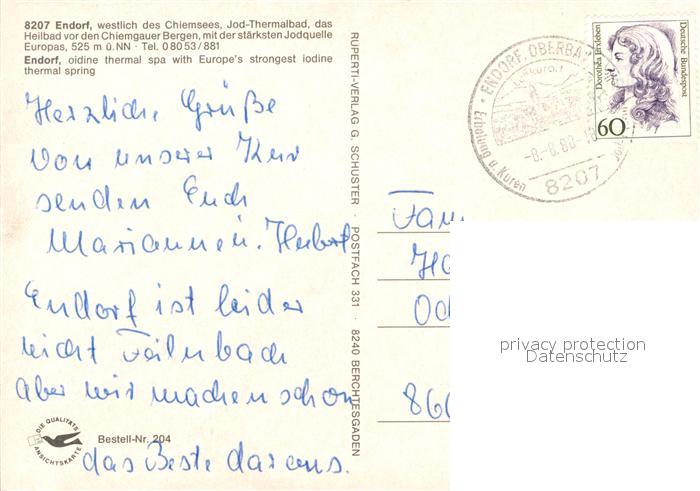 8207 Endorf, westlich des Chiemsees, Jod-Thermalbad, das
Heilbad vor den Chiemgauer Bergen, mit der stärksten Jodquelle
Europas, 525 m ü.NN · Tel. 0 80 53 / 881
Endorf, oidine thermal spa with Europe's strongest iodine
thermal spring
Herzliche Grüße
von unserer Kur
senden Euch
Marianne u. Herbert
Endorf ist leider
nicht Feilnbach
aber wir machen schon
das Beste daraus.
DIE QUALITÄTS
ANSICHTSKARTE
Bestell-Nr. 204
RUPERTI-VERLAG G. SCHUSTER · POSTFACH 331 · 8240 BERCHTESGADEN
ENDORF, OBERBA
Erholung u. Kuren
8207
Dorothea Erxleben
Deutsche Bundespost
60
Fam
Ha
860
privacy protection
Datenschutz